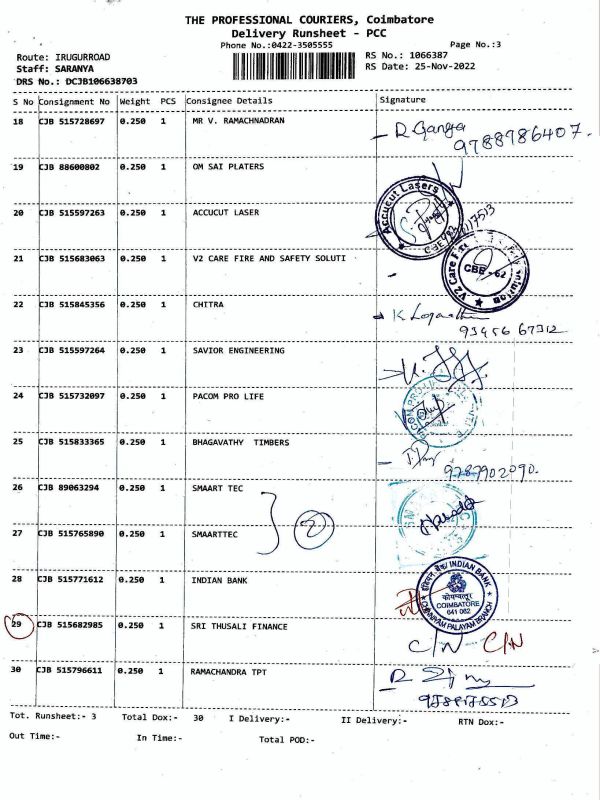 THE PROFESSIONAL COURIERS, Coimbatore
Delivery Runsheet - PCC
Phone No.:0422-3505555
Page No.:3
Route: IRUGURROAD
RS No.: 1066387
Staff: SARANYA
RS Date: 25-Nov-2022
DRS No.: DCJB106638703
S No Consignment No Weight PCS Consignee Details Signature
18 CJB 515728697 0.250 1 MR V. RAMACHNADRAN
R Ganga
9788986407.
19 CJB 88600802 0.250 1 OM SAI PLATERS
20 CJB 515597263 0.250 1 ACCUCUT LASER
Accucut Lasers
21 CJB 515683063 0.250 1 V2 CARE FIRE AND SAFETY SOLUTI
V2 Care Fire
CBE - 62
22 CJB 515845356 0.250 1 CHITRA
23 CJB 515597264 0.250 1 SAVIOR ENGINEERING
24 CJB 515732097 0.250 1 PACOM PRO LIFE
25 CJB 515833365 0.250 1 BHAGAVATHY TIMBERS
9787902090.
26 CJB 89063294 0.250 1 SMAART TEC
2
27 CJB 515765890 0.250 1 SMAARTTEC
28 CJB 515771612 0.250 1 INDIAN BANK
INDIAN BANK
कोयम्बत्तूर
COIMBATORE
641 062
CHINNIYAM PALAYAM BRANCH
29 CJB 515682985 0.250 1 SRI THUSALI FINANCE
C/N C/N
30 CJB 515796611 0.250 1 RAMACHANDRA TPT
Tot. Runsheet:- 3 Total Dox:- 30 I Delivery:- II Delivery:- RTN Dox:-
Out Time:- In Time:- Total POD:-